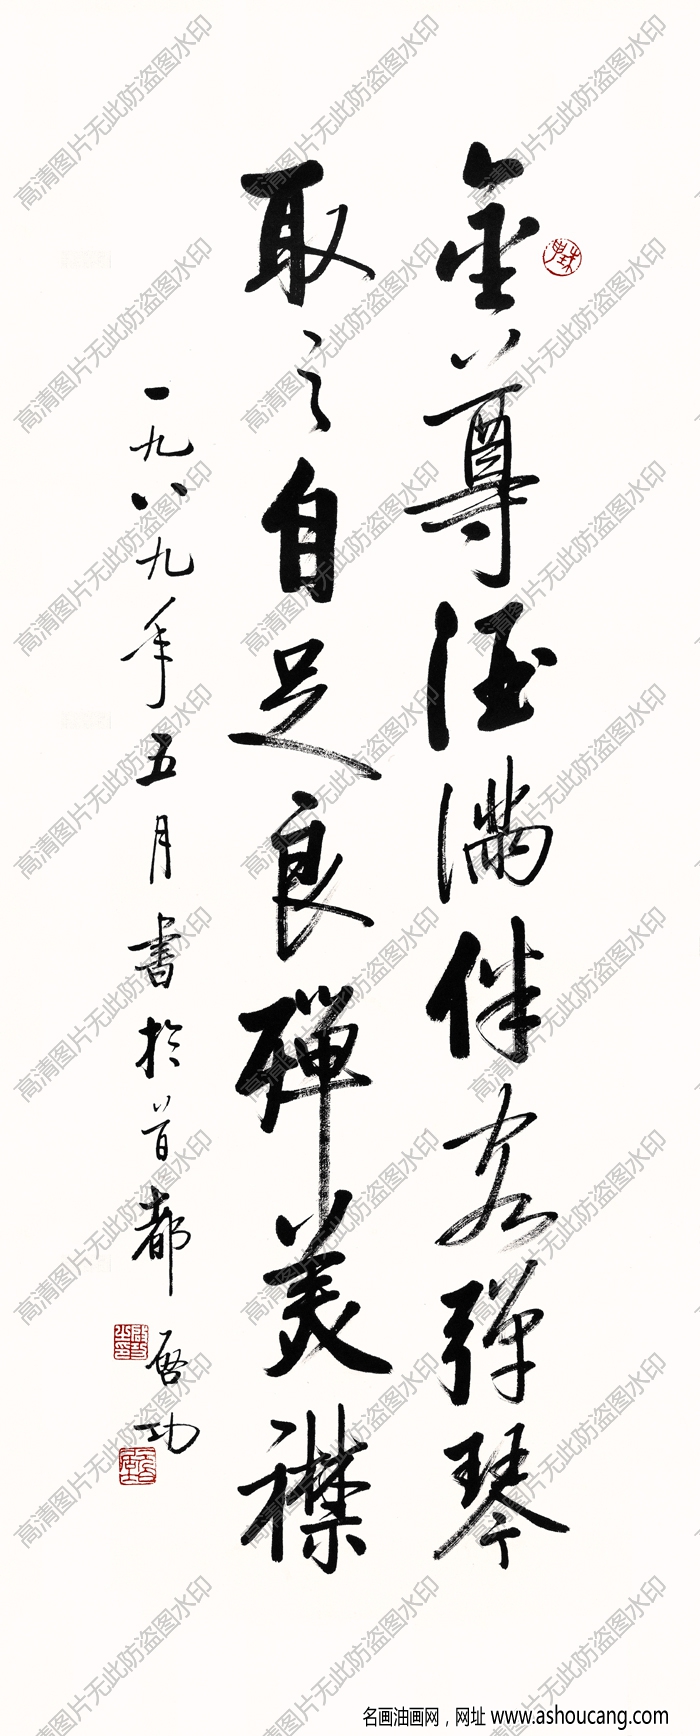 金尊酒满伴客弹琴
取之自足良殚美襟
一九八九年五月書於首都 启功
高清图片无此防盗图水印
名画油画网，网址 www.ashoucang.com